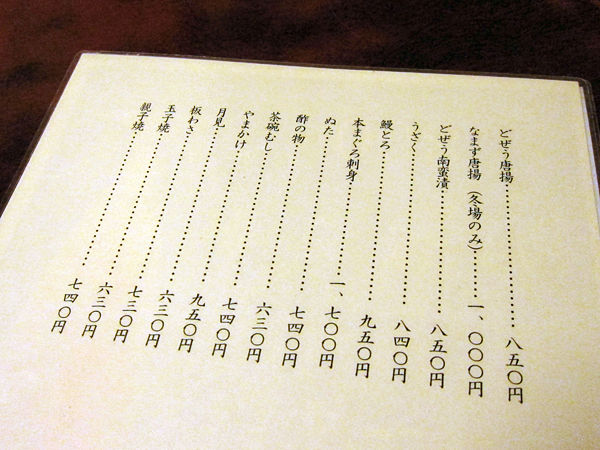 どぜう唐揚……………………八五〇円
なまず唐揚（冬場のみ）………一、〇〇〇円
どぜう南蛮漬…………………八五〇円
うざく…………………………八四〇円
鰻とろ…………………………九五〇円
本まぐろ刺身…………………一、七〇〇円
ぬた……………………………七四〇円
酢の物…………………………六三〇円
茶碗むし………………………七四〇円
やまかけ………………………九五〇円
月見……………………………六三〇円
板わさ…………………………七三〇円
玉子焼…………………………六三〇円
親子焼…………………………七四〇円